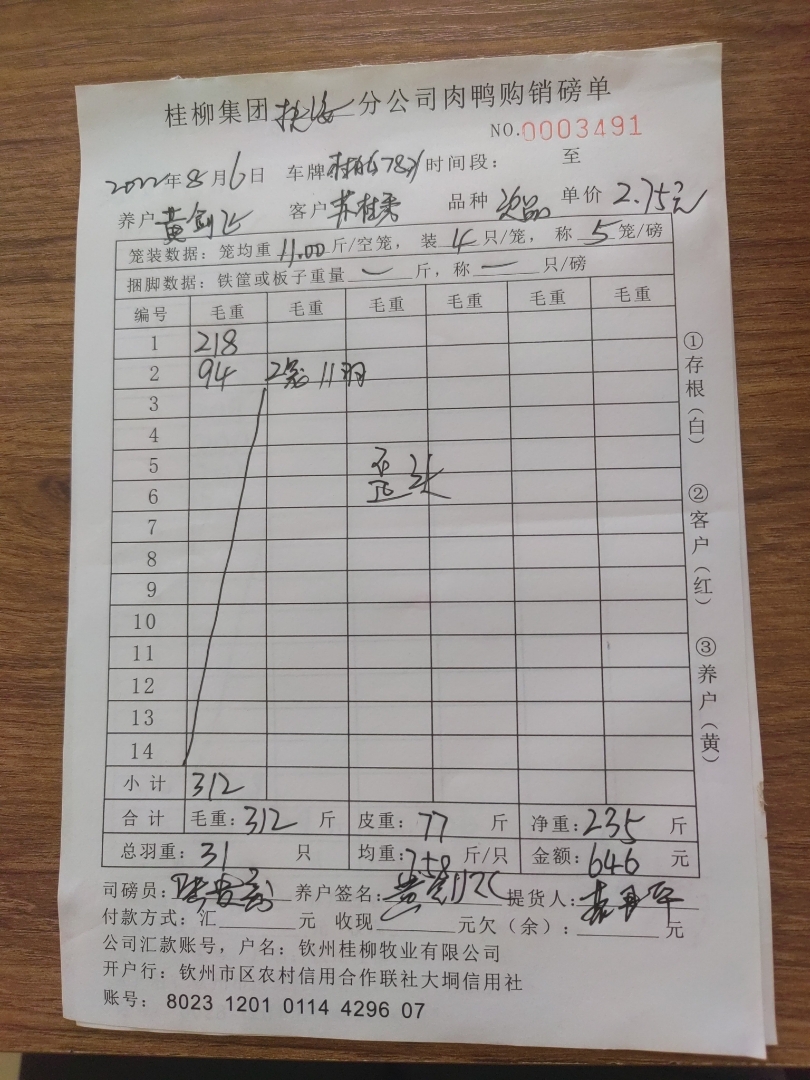 桂柳集团 分公司肉鸭购销磅单
NO.0003491
2022年8月6日 车牌 时间段: 至
养户黄剑飞 客户苏桂秀 品种次品 单价2.75元
笼装数据: 笼均重11.00斤/空笼, 装4只/笼, 称5笼/磅
捆脚数据: 铁筐或板子重量一斤, 称一只/磅
编号 毛重 毛重 毛重 毛重 毛重 毛重
1 218
2 94 2笼11羽
3
4
5 歪头
6
7
8
9
10
11
12
13
14
小计 312
合计 毛重: 312 斤 皮重: 77 斤 净重: 235 斤
总羽重: 31 只 均重: 7.58 斤/只 金额: 646 元
司磅员: 养户签名: 提货人:
付款方式: 汇 元 收现 元欠(余): 元
公司汇款账号, 户名: 钦州桂柳牧业有限公司
开户行: 钦州市区农村信用合作联社大垌信用社
账号: 8023 1201 0114 4296 07
①存根(白)
②客户(红)
③养户(黄)